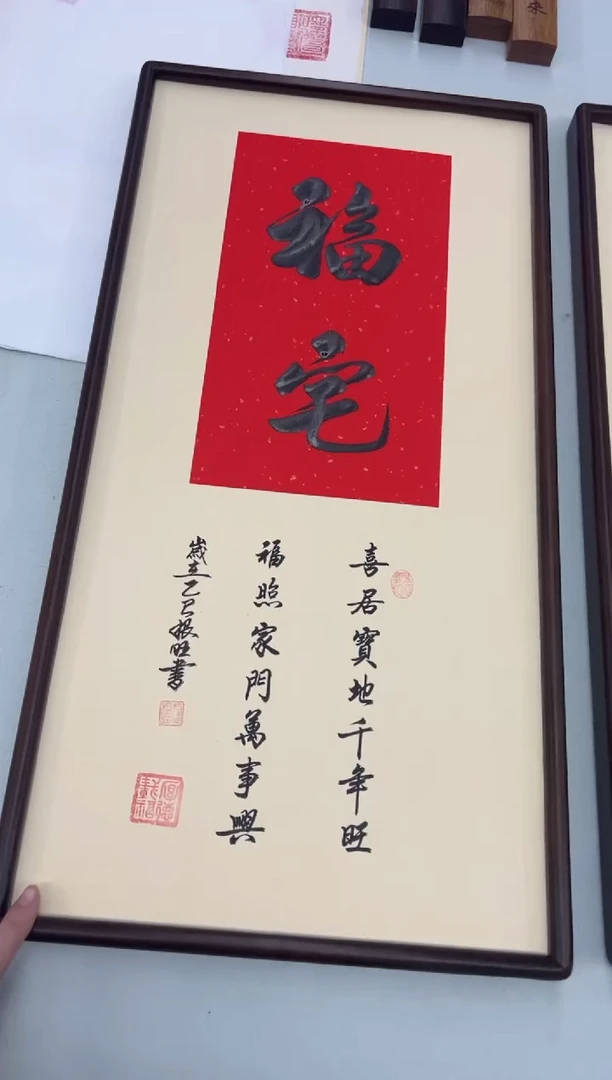 福宅
喜居寶地千年旺
福照家門萬事興
歲在乙巳振旺書
厚德載福